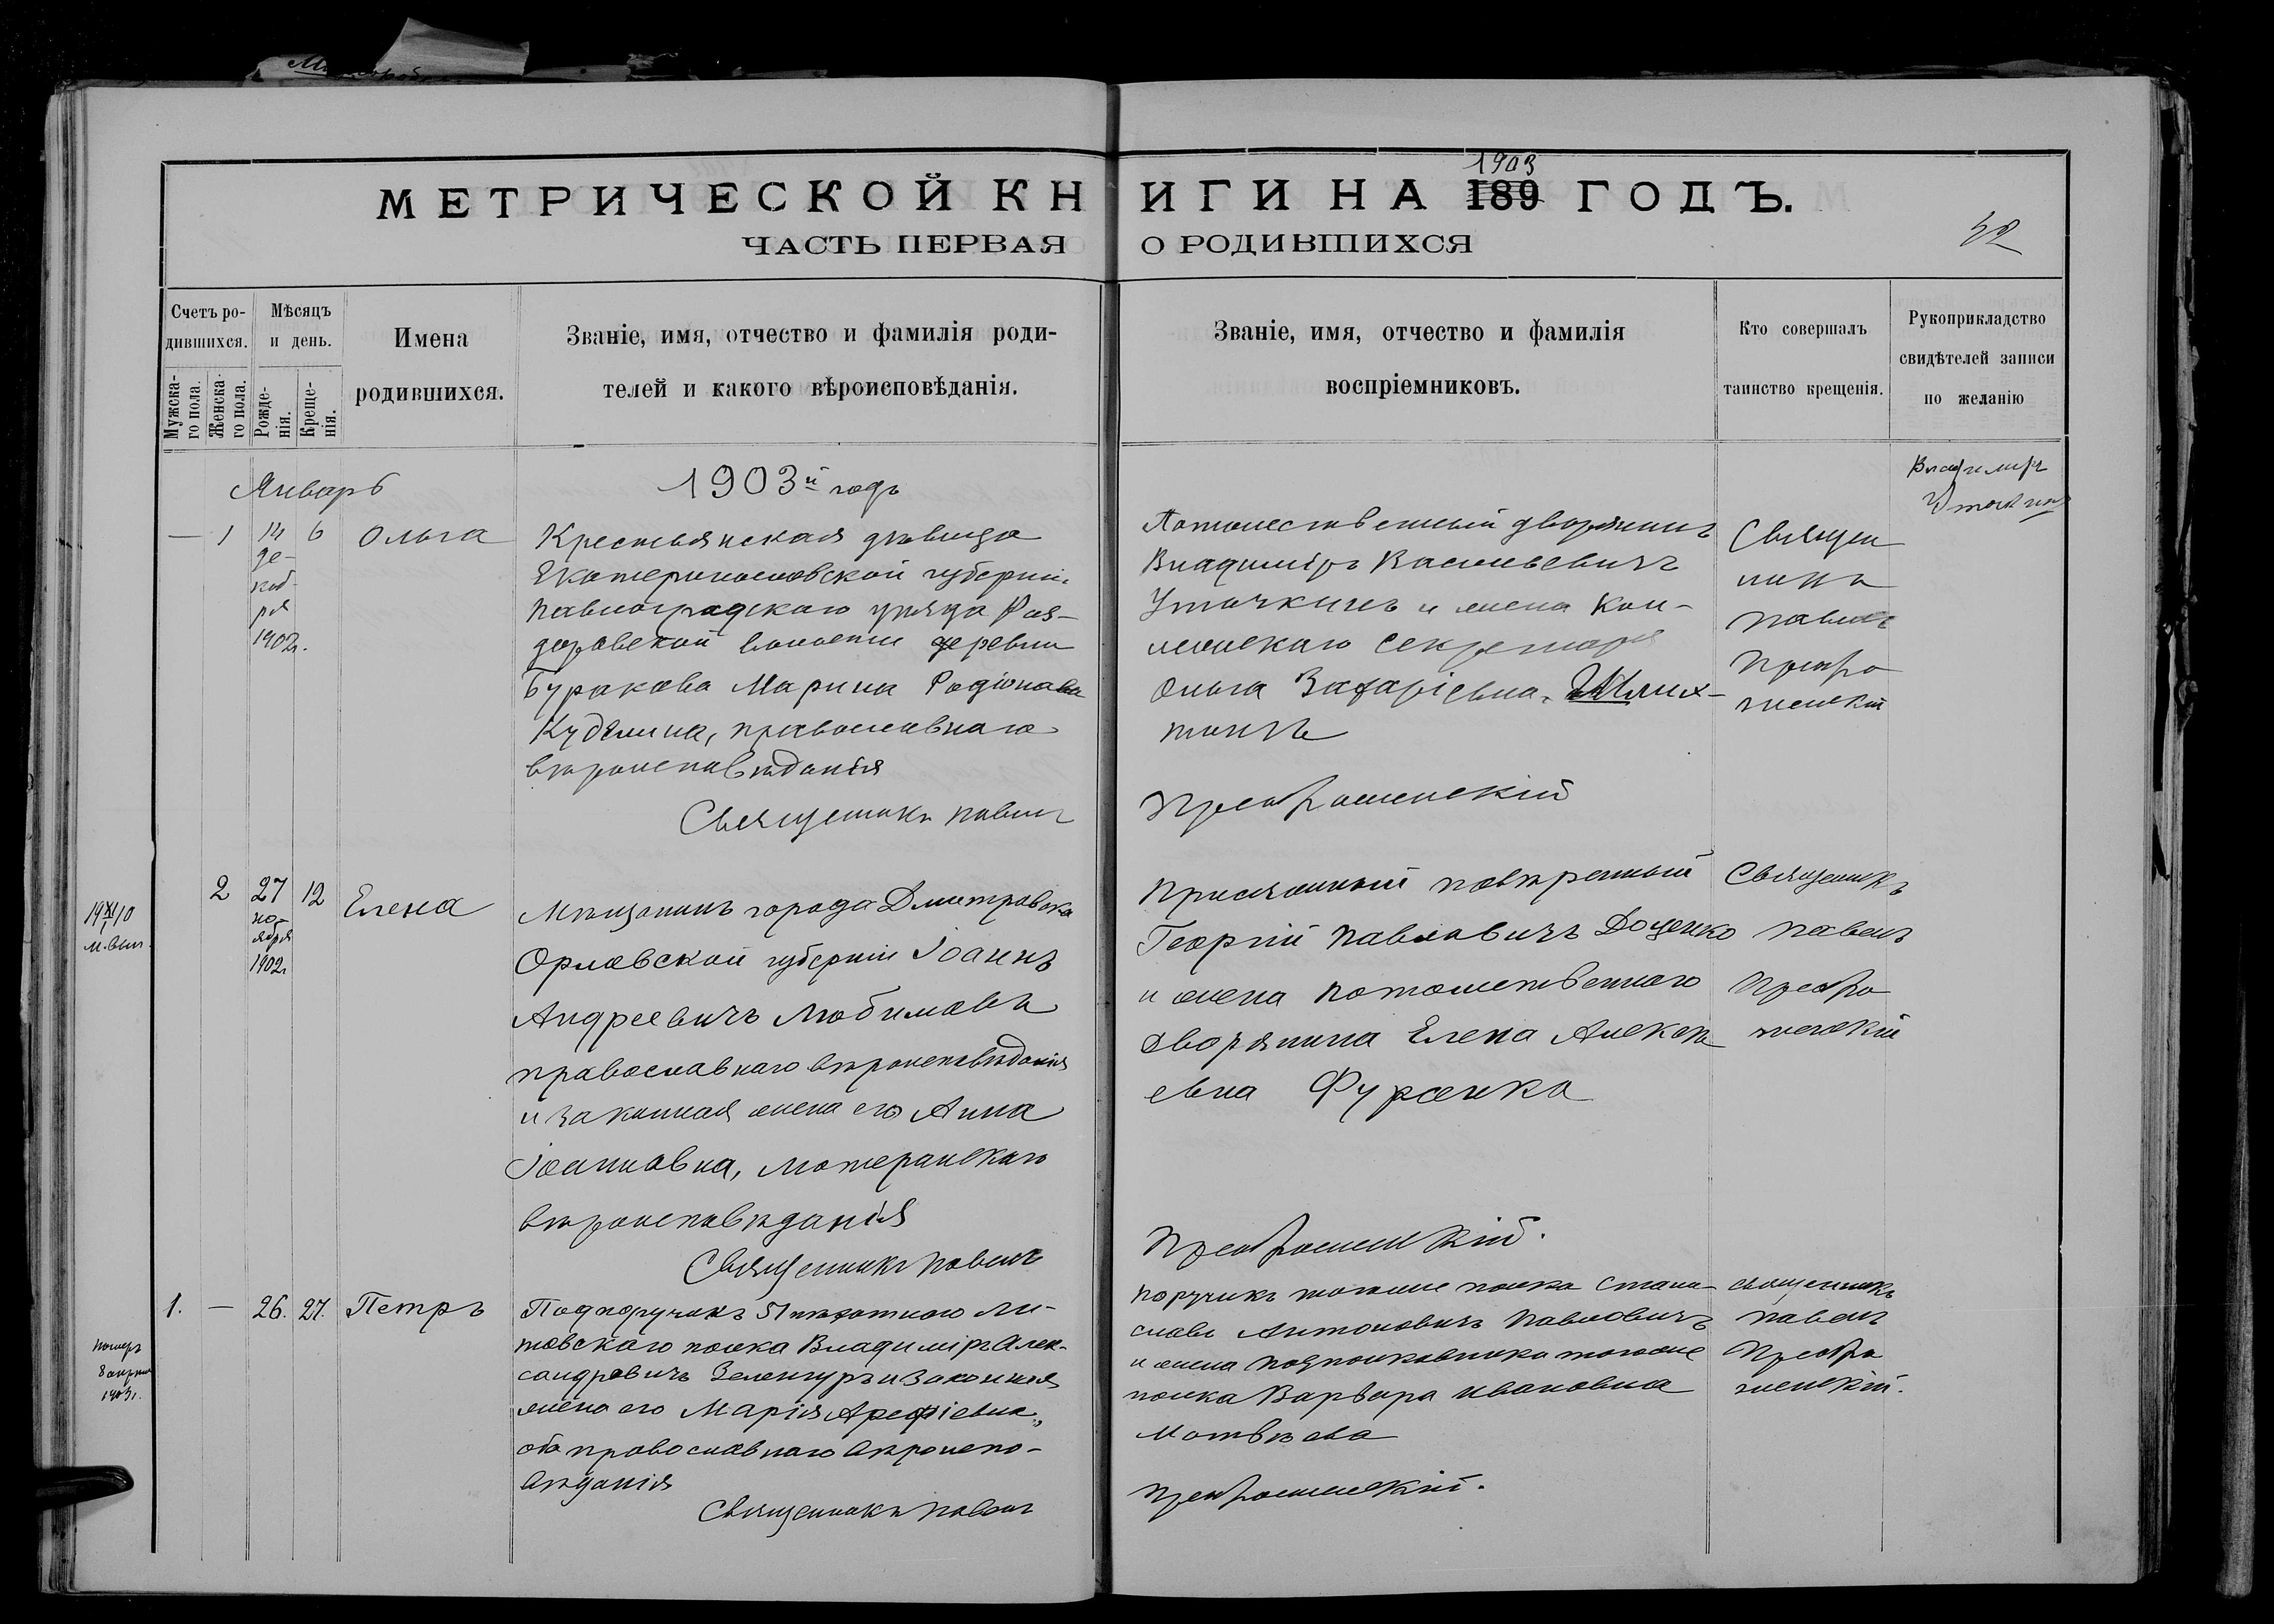 МЕТРИЧЕСКОЙ КНИГИ НА 189 ГОДЪ.
1903
ЧАСТЬ ПЕРВАЯ О РОДИВШИХСЯ
Счетъ ро-
дившихся.
Мужска-
го пола.
Женска-
го пола.
Мѣсяцъ
и день.
Рожде-
нія.
Креще-
нія.
Имена
родившихся.
Званіе, имя, отчество и фамилія роди-
телей и какого вѣроисповѣданія.
Званіе, имя, отчество и фамилія
воспріемниковъ.
Кто совершалъ
таинство крещенія.
Рукоприкладство
свидѣтелей записи
по желанію
Январь
1903й годъ
— 1
14
де-
каб-
ря
1902г.
6
Ольга
Крестьянская дѣвица
Екатеринославской губерніи
Павлоградскаго уѣзда
доровской волости деревни
Бурякова Марина Родіонова
православнаго
вѣроисповѣданія
Священникъ Павелъ
Потомственный дворянинъ
Владиміръ Васильевичъ
Уточкинъ и жена Кол-
лежскаго Секретаря
Ольга Захаріевна
Преображенскій
Священ
никъ
Павелъ
Преобра
женскій
Владимиръ
Уточкинъ
2
27
но-
ября
1902г
12
Елена
Мѣщанинъ города Дмитровска
Орловской губерніи Іоаннъ
Андреевичъ Любимовъ
православнаго вѣроисповѣданія
и законная жена его Анна
Іоанновна, лютеранскаго
вѣроисповѣданія
Священникъ Павелъ
Присяжный повѣренный
Георгій Павловичъ Доценко
и жена потомственнаго
дворянина Елена Алексѣ
евна
Преображенскій.
Священникъ
Павелъ
Преобра
женскій
1. —
26.
27.
Петръ
Подпоручикъ 51 пѣхотнаго Ли-
товскаго полка Владиміръ Алек-
сандровичъ и законная
жена его Марія Арефіевна,
оба православнаго вѣроиспо-
вѣданія
Священникъ Павелъ
Поручикъ того же полка Стани-
славъ Антоновичъ Павловичъ
и жена подполковника того же
полка Варвара Ивановна
Матвѣева
Преображенскій.
Священникъ
Павелъ
Преобра
женскій.
1903г.